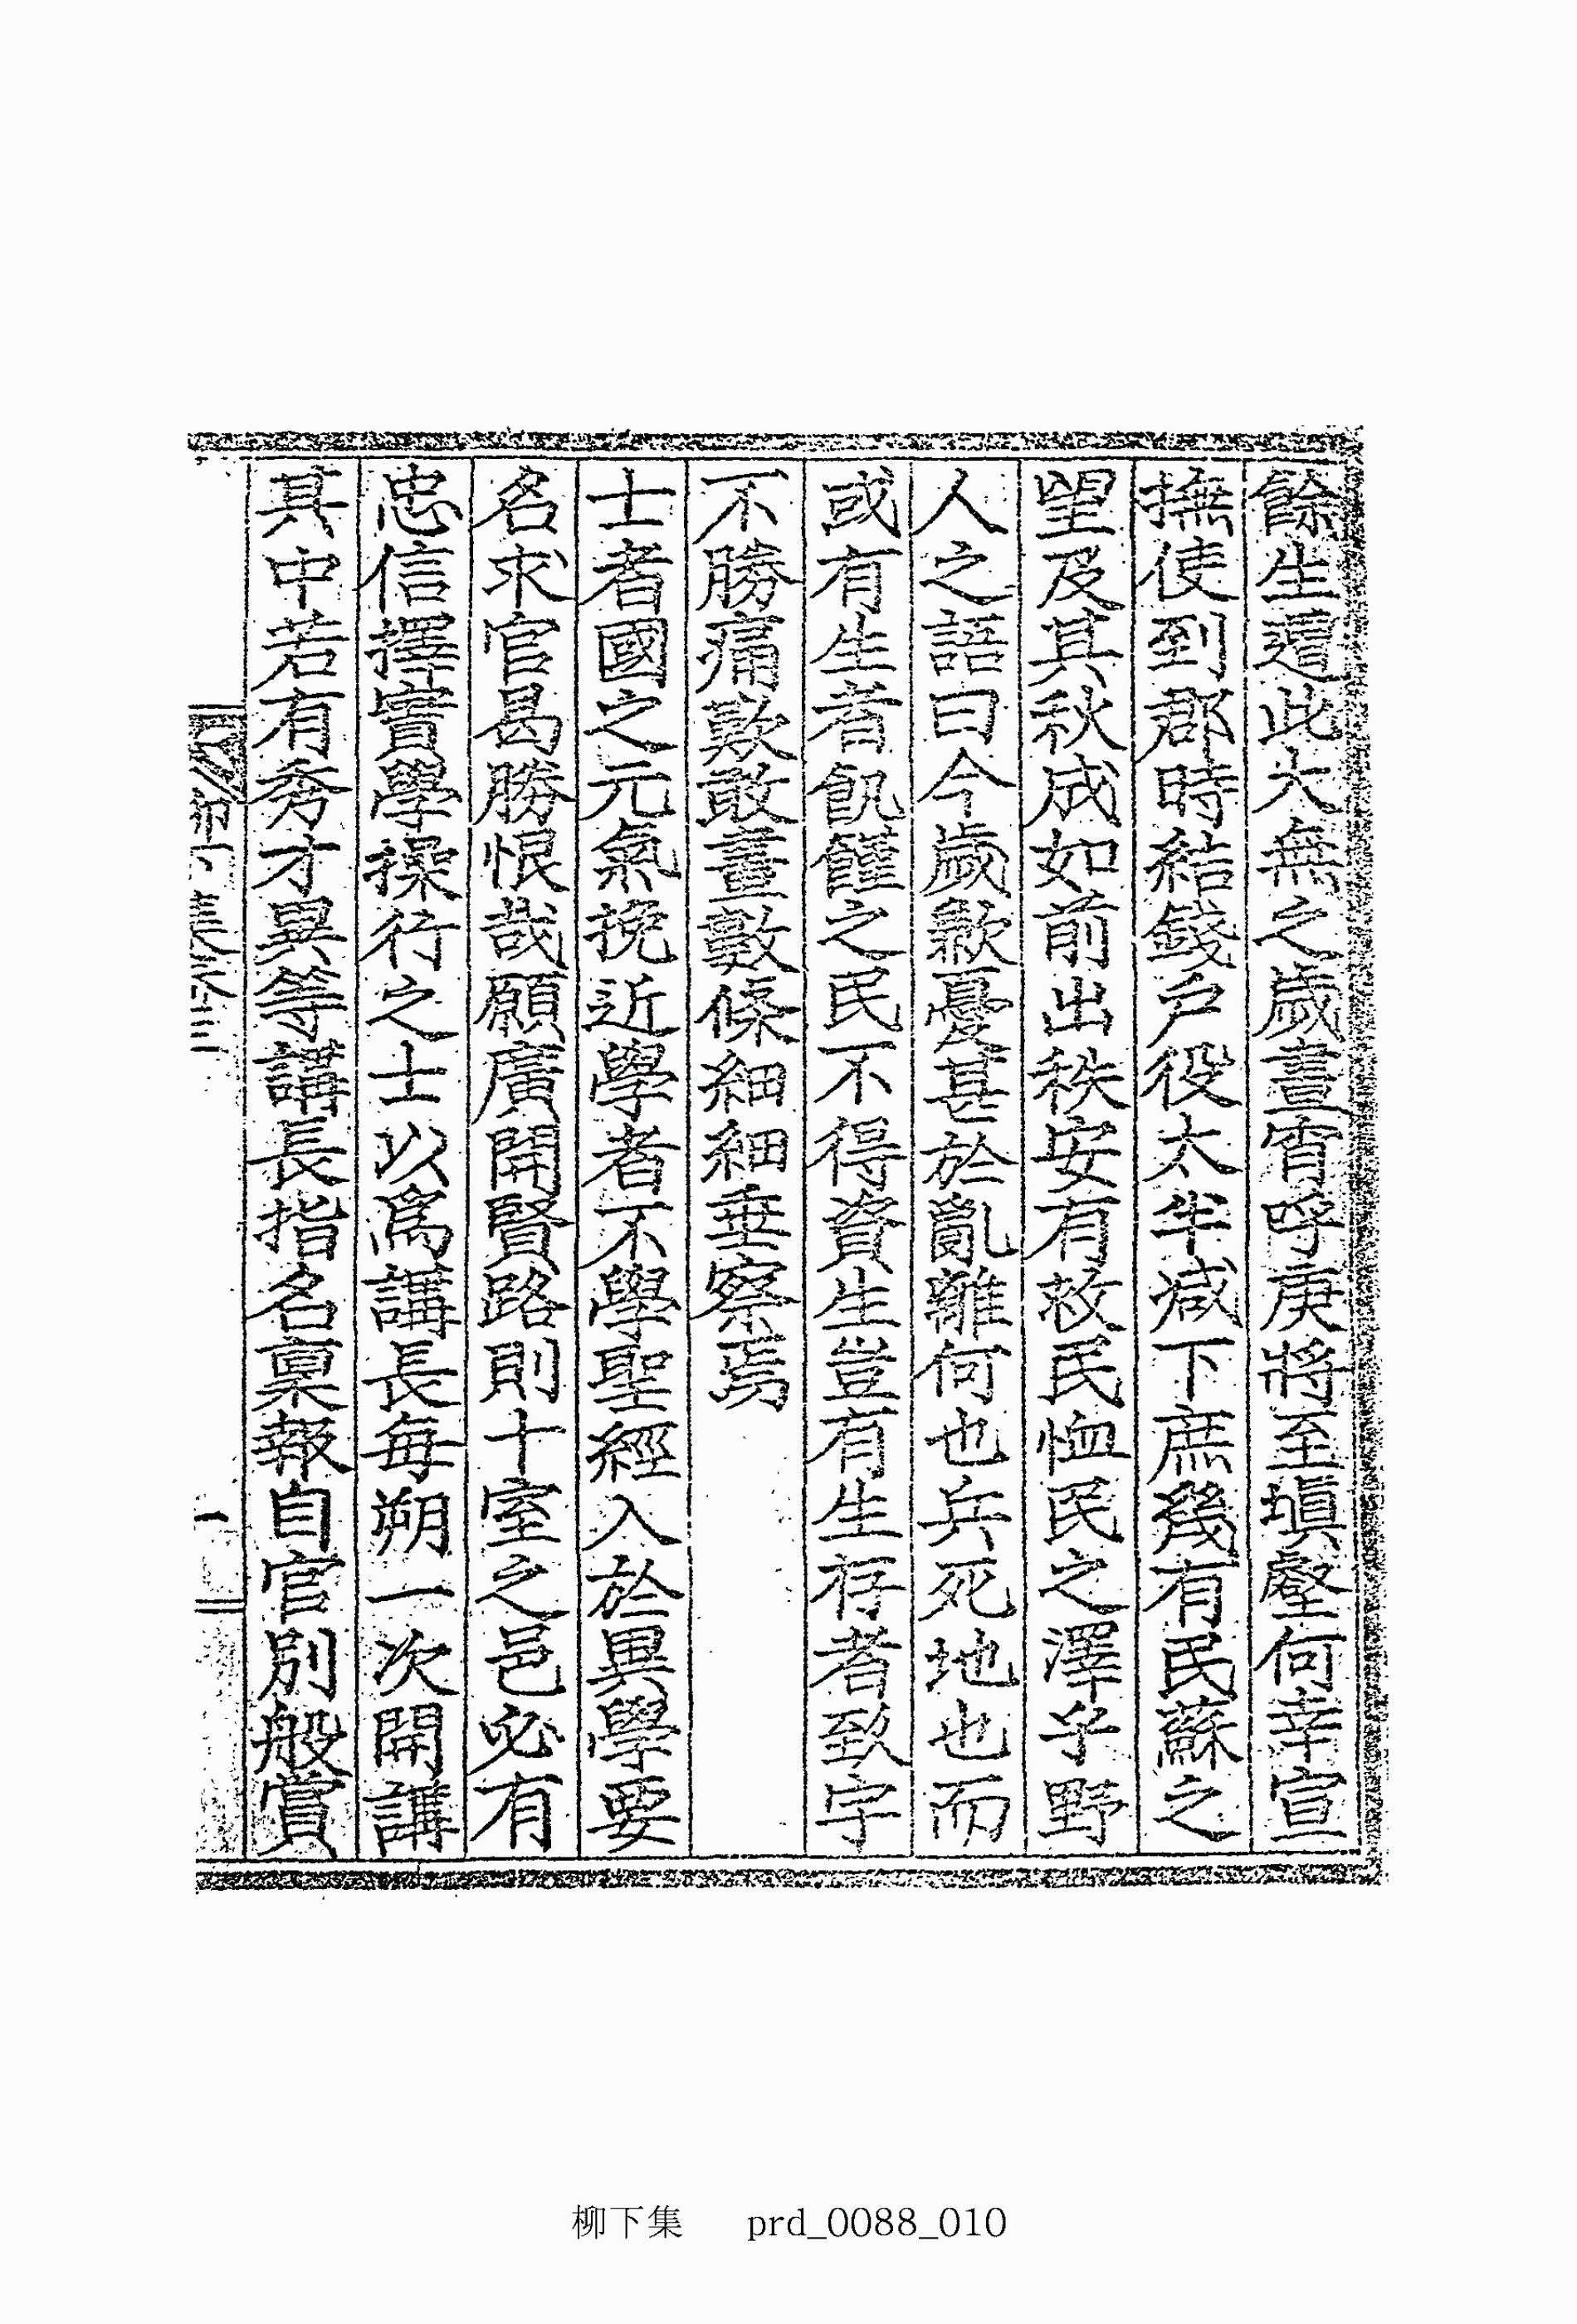 餘生遭此大無之歲晝宵呼庚將至塡壑何幸宣
撫使到郡時結錢戶役太半减下庶幾有民蘇之
望及其秋成如前出秩安有救民恤民之澤乎野
人之語曰今歲歉憂甚於亂離何也兵死地也而
或有生者飢饉之民不得資生豈有生存者致字
不勝痛歎敢晝數條細細垂察焉
士者國之元氣挽近學者不學聖經入於異學要
名求官曷勝恨哉願廣開賢路則十室之邑必有
忠信擇實學操行之士以爲講長每朔一次開講
其中若有秀才異等講長指名稟報自官別般賞
柳下集卷之三
一
柳下集 prd_0088_010